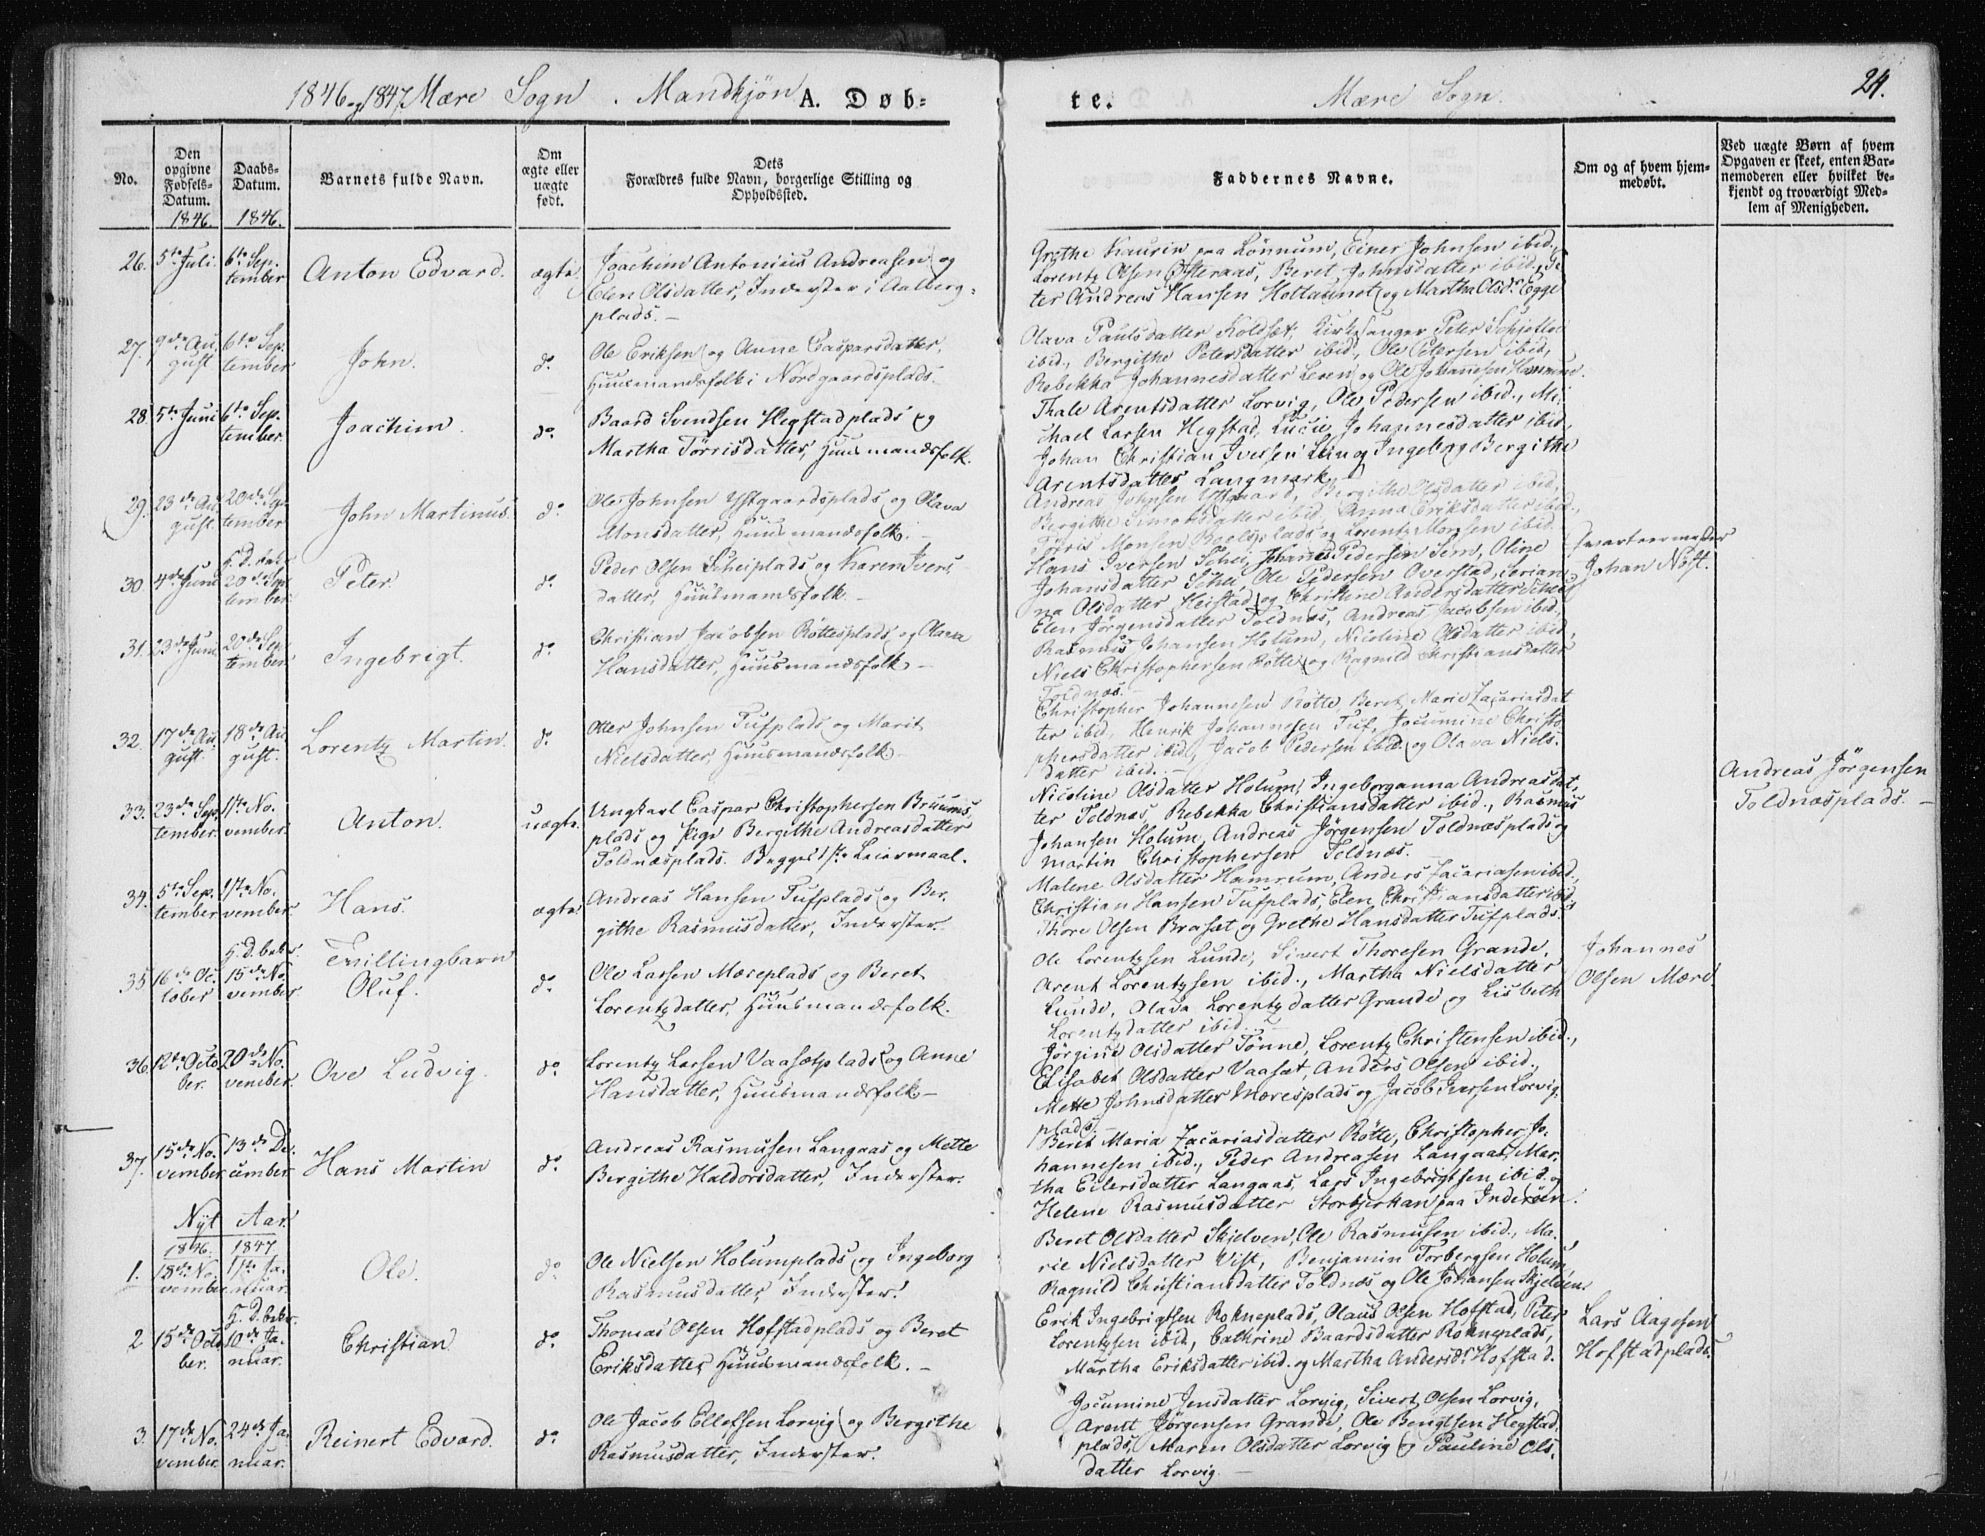 1846 og 1847. Mære Sogn. Mandkjøn A. Døb-
te. Mære Sogn. 24.
No.
Den opgivne Fødsels-Datum. 1846.
Daabs-Datum. 1846.
Barnets fulde Navn.
Om ægte eller uægte født.
Dets Forældres fulde Navn, borgerlige Stilling og Opholdssted.
Faddernes Navne.
Om og af hvem hjem-
medøbt.
Ved uægte Børn af hvem
Opgaven er skeet, enten Bar-
nemoderen eller hvilket be-
kjendt og troværdigt Med-
lem af Menigheden.
26. 5te Juli 6te Sep-
tember Anton Edvard. ægte
Joachim Antonius Andreasen og
Elen Olsdatter, Inderster i Aalberg-
plads.
Grethe Kaurin paa Lønnum, Einer Johnsen ibid.,
Lorentz Olsen Østeraas, Beret Johnsdatter ibid., Pe-
ter Andreas Hansen og Martha Olsdr. Egge
27. 9de Au-
gust 6te Sep-
tember John. do.
Ole Eriksen og Anne Casparsdatter,
Huusmandsfolk i Nordgaardsplads.
Olava Paulsdatter Koldset, Kirkesanger Peter Schjøtte
ibid., Bergithe Petersdatter ibid., Ole Petersen ibid.,
Rebekka Johannesdatter Leren og Ole Johannesen
28. 5te Juni 6te Sep-
tember. Joachim. do.
Baard Svendsen Hegstadplads og
Martha Tørrisdatter, Huusmandsfolk.
Thale Arentsdatter Lorvig, Ole Pedersen ibid., Mi-
chael Larsen Hegstad, Lucie Johannesdatter ibid.,
Johan Christian Iversen Lein og Ingeborg Bergithe
Arentsdatter Langmark.
29. 23de Au-
gust. 20de Sep-
tember John Martinus. do.
Ole Johnsen Ystgaardsplads og Olava
Monsdatter, Huusmandsfolk.
Andreas Johnsen Ystgaard, Bergithe Olsdatter ibid.,
Bergithe Simonsdatter ibid., Anna Eriksdatter ibid.,
Tørris Monsen og Lorentz Monsen ibid.
30. 4de Juni H. D. bekr.
20de Sep-
tember. Peter. do.
Peder Olsen Scheiplads og Karen Ivers-
datter, Huusmandsfolk.
Hans Iversen Schei, Johannes Pedersen Sem, Oline
Johansdatter Schei, Ole Pedersen Overstad,
na Olsdatter Heistad og Christine Andersdatter
Johan Nøst.
31. 23de Juni 20de Sep-
tember Ingebrigt. do.
Christian Jacobsen Røttesplads og Olava
Hansdatter, Huusmandsfolk.
Elen Jørgensdatter Toldnæs, Andreas Jacobsen ibid.,
Rasmus Johansen Holum, Nicoline Olsdatter ibid.,
Niels Christophersen Røtte og Ragnild Christiansdatter
Toldnæs.
32. 17de Au-
gust. 18de Au-
gust. Lorentz Martin. do.
Johnsen Tufplads og Marit
Nielsdatter, Huusmandsfolk.
Christopher Johannesen Røtte, Beret Marie Zacariasdat-
ter ibid., Henrik Johannesen Tuf, Jocumine Christo-
phersdatter ibid., Jacob Pedersen ibid. og Olava Niels-
datter ibid.
33. 23de Sep-
tember. 1ste No-
vember. Anton. uægte.
Ungkarl Caspar Christophersen Bruums-
plads og Pige Bergithe Andreasdatter
Toldnæsplads. Begges 1ste Leiermaal.
Nicoline Olsdatter Holum, Ingeborganna Andreasdat-
ter Toldnæs, Rebekka Christiansdatter ibid., Rasmus
Johansen Holum, Andreas Jørgensen Toldnæsplads og
Martin Christophersen Toldnæs.
Andreas Jørgensen
Toldnæsplads.
34. 5te Sep-
tember 1ste No-
vember. Hans. ægte.
Andreas Hansen Tufplads og Ber-
githe Rasmusdatter, Inderster.
Malene Olsdatter Hamrum, Anders Zacariasen ibid.,
Christian Hansen Tufplads, Elen Christiansdatter ibid.,
Thore Olsen Braset og Grethe Hansdatter Tufplads.
35 16de Oc-
tober H. D. bekr.
15de No-
vember. Tvillingbarn
Oluf. do.
Ole Larsen Mæreplads og Beret
Lorentzdatter, Huusmandsfolk.
Ole Lorentzsen Lunde, Sivert Thoresen Grande,
Arent Lorentzsen ibid., Martha Nielsdatter
Lunde, Olava Lorentzdatter Grande og Lisbeth
Lorentzdatter ibid.
Johannes
Olsen Mære.
36. 12te Octo-
ber. 20de No-
vember. Ove Ludvig. do.
Lorentz Larsen Vaasætplads og Anne
Hansdatter, Huusmandsfolk.
Jørgine Olsdatter Tønne, Lorentz Christensen ibid.,
Elisabet Olsdatter Vaasæt, Anders Olsen ibid.,
Mette Johnsdatter Mæresplads og Jacob Iversen Lorvig-
plads.
37. 15de No-
vember 13de De-
cember. Hans Martin do.
Andreas Rasmusen Langaas og Mette
Bergithe Haldorsdatter, Inderster.
Beret Maria Zacariasdatter Røtte, Christopher Jo-
hannesen ibid., Peder Andreasen Langaas, Mar-
tha Eilersdatter Langaas, Lars Ingebrigtsen ibid. og
Helene Rasmusdatter paa Inderøen.
Nyt Aar.
1846. 1847
1. 18de No-
vember 1ste Ja-
nuar. Ole. do.
Ole Nielsen Holumplads og Ingeborg
Rasmusdatter, Inderster.
Beret Olsdatter Skjelven, Ole Rasmusen ibid., Ma-
rie Nielsdatter Vist, Benjamin Torbergsen Holum,
Ragnild Christiansdatter Toldnæs og Ole Johansen Skjelven.
2 15de Octo-
ber. H. D. bekr.
10de Ja-
nuar. Christian. do.
Thomas Olsen Hofstadplads og Beret
Eriksdatter, Huusmandsfolk.
Erik Ingebrigtsen Rokneplads, Olaus Olsen Hofstad, Peter
Lorentzsen ibid., Cathrine Baardsdatter Rokneplads,
Martha Eriksdatter ibid. og Martha Andersdr. Hofstad.
Lars Aagesen
Hofstadplads.
3. 17de No-
vember. 24de Ja-
nuar. Reinert Edvard. do.
Ole Jacob Ellefsen Lorvig og Bergithe
Rasmusdatter, Inderster.
Jocumine Jensdatter Lorvig, Sivert Olsen Lorvig,
Arent Jørgensen Grande, Ole Bengtsen Hegstad-
plads, Maren Olsdatter Lorvig og Pauline Ols-
datter Lorvig.